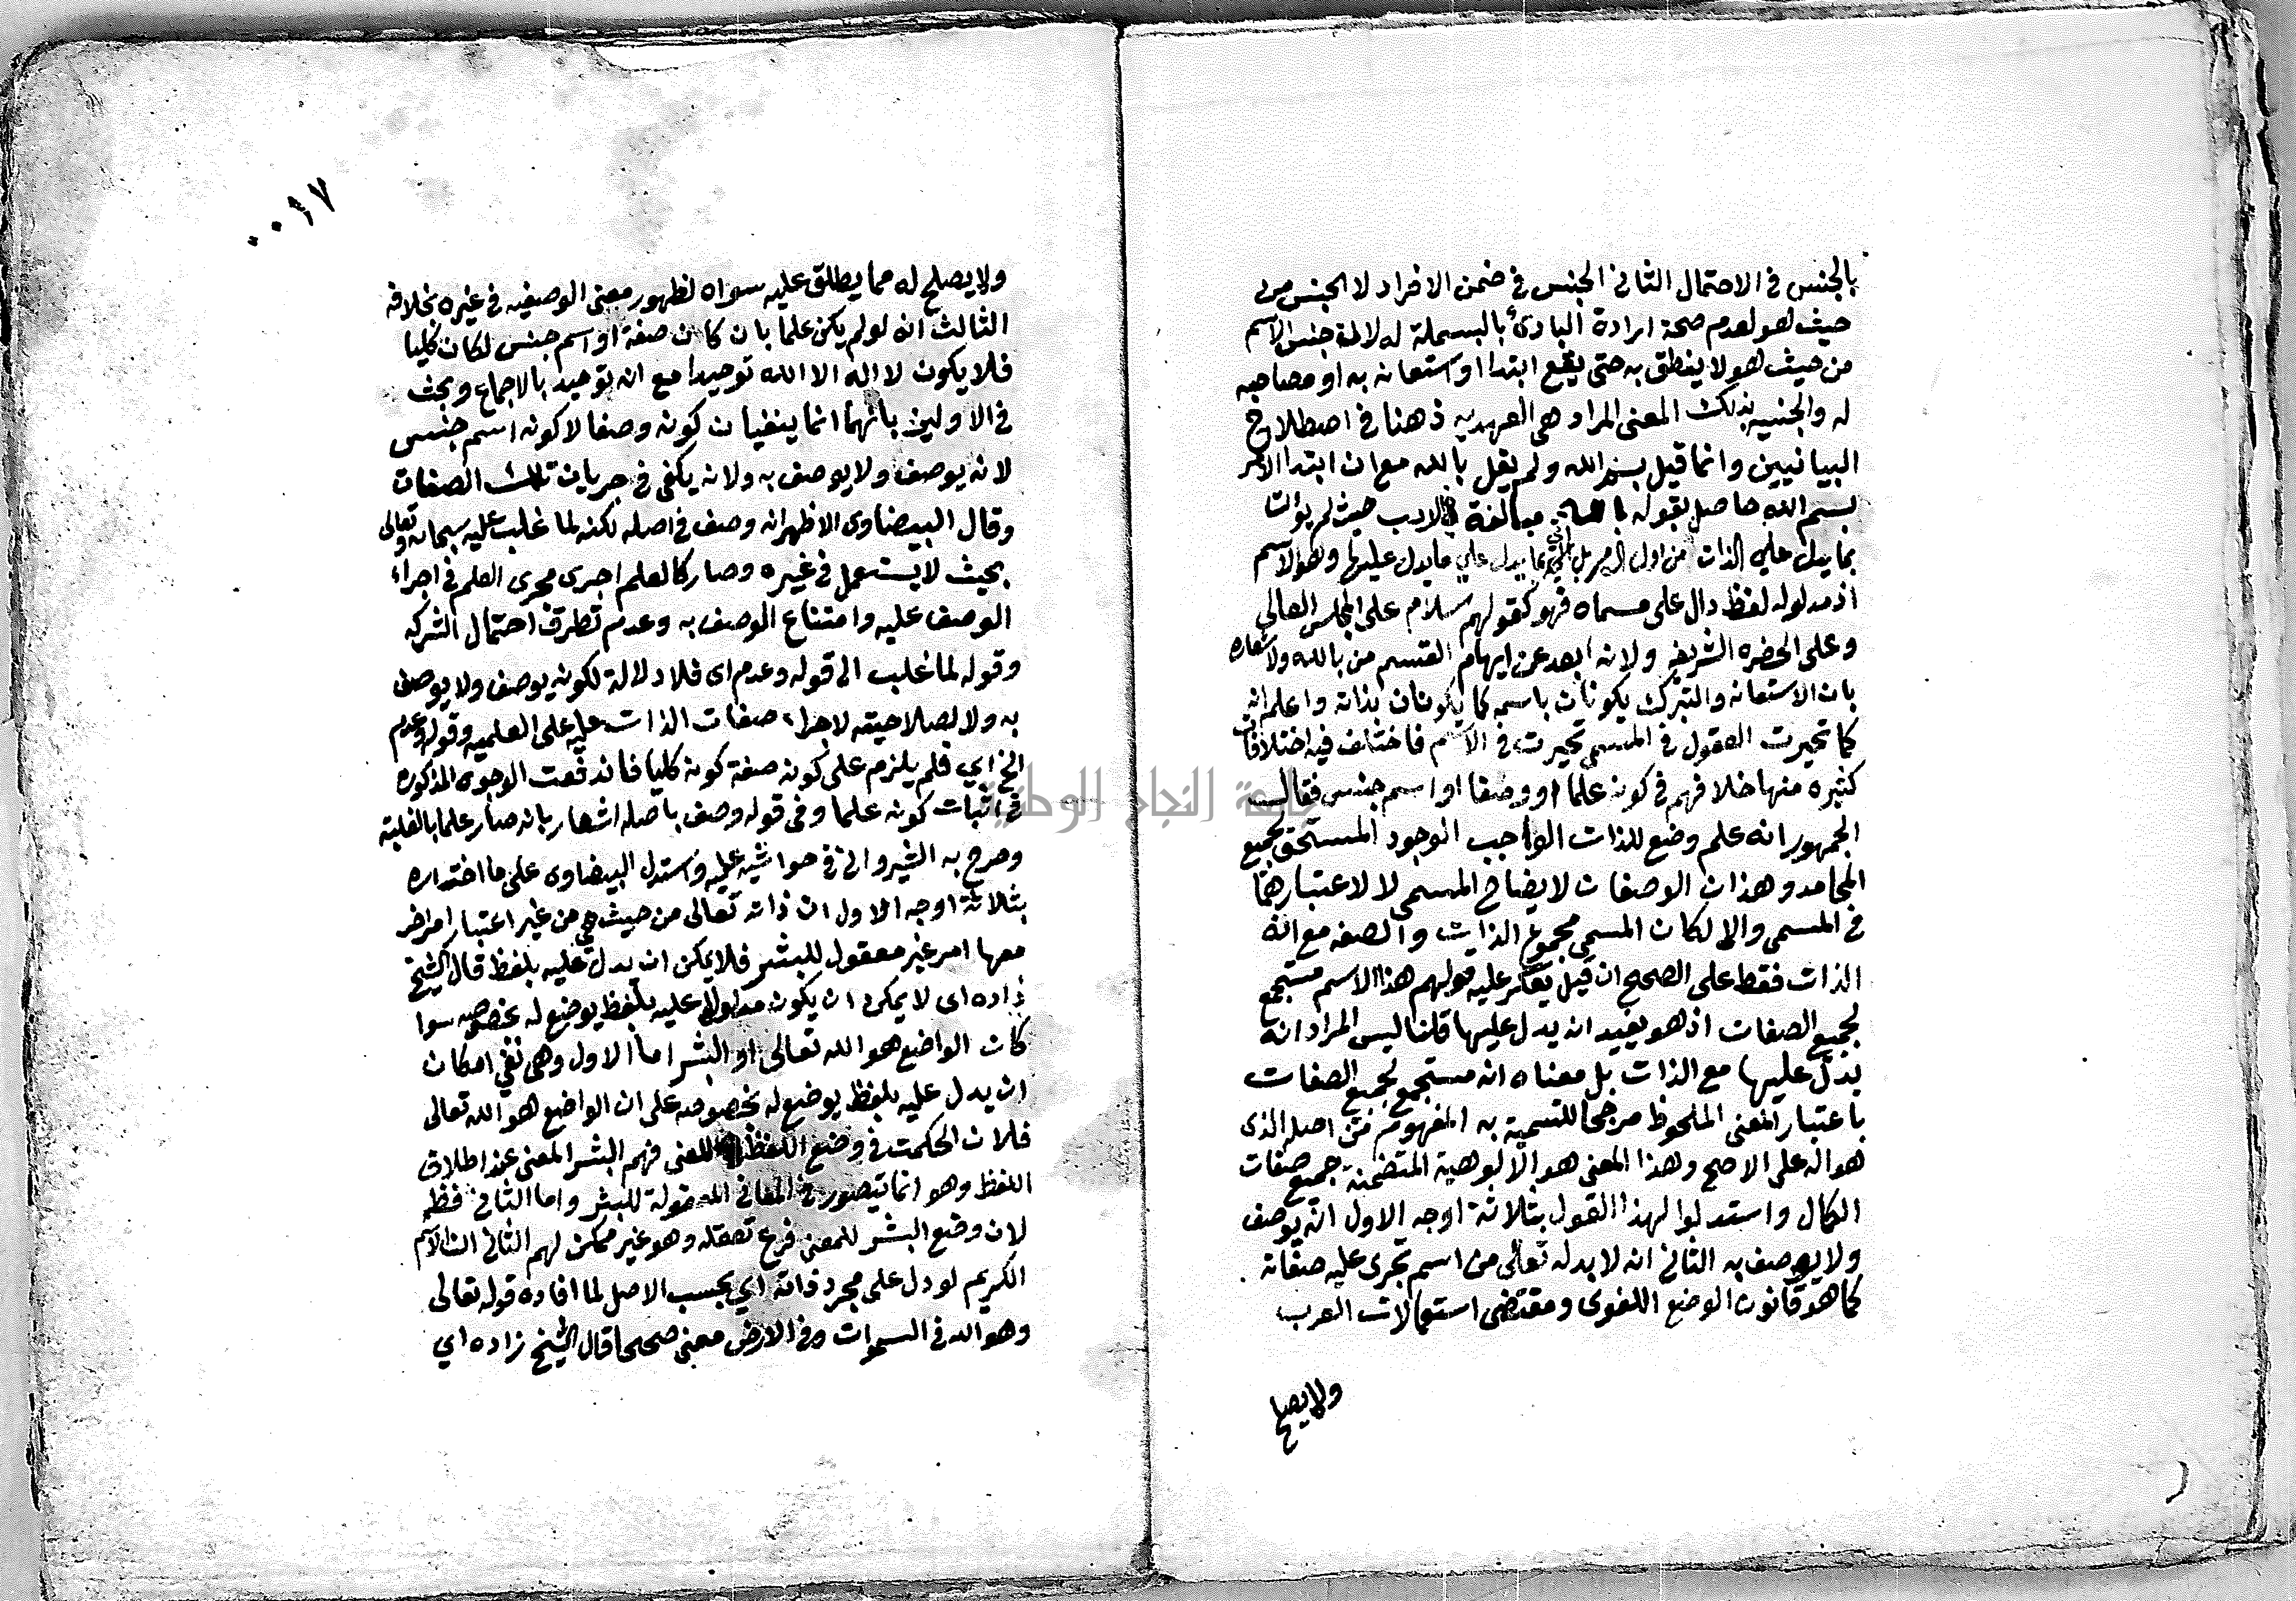 بالجنس في الاحتمال الثاني الجنس في ضمن الافراد لا الجنس من
حيث هو لعدم صحة ارادة البادئ بالبسملة له لانه جنس الاسم
من حيث هو لا ينطق به حتى يقع ابتدا او استعانه به او مصاحبه
له والجنسيه بذلك المعنى المراد هي العهديه ذهنا في اصطلاح
البيانيين وانما قيل بسم الله ولم يقل بالله مع ان ابتدا الامر
بسم الله حاصل بقوله بالله مبالغة في الادب حيث لم يؤت
بما يدل على الذات من اول الامر بل اتى بما يدل على ما يدل عليها وهو الاسم
اذ مدلوله لفظ دال على مسماه فهو كقولهم سلام على المجلس العالي
وعلى الحضره الشريفه ولانه ابعد عن ايهام القسم من بالله ولاشعاره
بان الاستعانه والتبرك يكونان باسمه كما يكونان بذاته واعلم انه
كما تحيرت العقول في المسمى تحيرت في الاسم فاختلف فيه اختلافات
كثيره منها خلافهم في كونه علما او وصفا او اسم جنس فقال
الجمهور انه علم وضع للذات الواجب الوجود المستحق لجميع
المحامد وهذان الوصفان لايضاح المسمى لا لاعتبارهما
في المسمى والا لكان المسمى مجموع الذات والصفه مع انه
الذات فقط على الصحيح ان قيل يعكر عليه قولهم هذا الاسم مستجمع
لجميع الصفات اذ هو يفيد ان يدل عليها قلنا ليس المراد انه
يدل عليها مع الذات بل معناه انه مستجمع لجميع الصفات
باعتبار المعنى الملحوظ مرجحا للتسمية به المفهوم من اصله الذى
هو اله على الاصح وهذا المعنى هو الالوهية المتضمنة جميع صفات
الكمال واستدلوا لهذا القول بثلاثة اوجه الاول انه يوصف
ولا يوصف به الثاني انه لا بد له تعالى من اسم تجرى عليه صفاته
كما هو قانون الوضع اللغوى ومقتضى استعمالات العرب
ولا يصلح
٠٠١٧
ولا يصلح له مما يطلق عليه سواه لظهور معنى الوصفيه في غيره بخلافه
الثالث انه لو لم يكن علما بان كان صفة او اسم جنس لكان كليا
فلا يكون لا اله الا الله توحيدا مع انه توحيد بالاجماع وبحث
في الاولين بانهما انما ينفيان كونه وصفا لا كونه اسم جنس
لانه يوصف ولا يوصف به ولانه يكفى في جريان تلك الصفات
وقال البيضاوى الاظهر انه وصف في اصله لكنه لما غلب عليه سبحانه وتعالى
بحيث لا يستعمل في غيره وصار كالعلم اجرى مجرى العلم في اجراء
الوصف عليه وامتناع الوصف به وعدم تطرق احتمال الشركه
وقوله لما غلب الى قوله وعدم اى فلا دلالة لكونه يوصف ولا يوصف
به ولا لصلاحيته لاجراء صفات الذات عليه على العلميه وقوله وعدم
الخ اي فلم يلزم على كونه صفة كونه كليا فاندفعت الوجوه المذكوره
في اثبات كونه علما وفي قوله وصف باصله اشعار بانه صار علما بالغلبة
وصرح به الشيرواني في حواشيه عليه واستدل البيضاوى على ما اختاره
بثلاثة اوجه الاول ان ذاته تعالى من حيث هي من غير اعتبار امر اخر
معها امر غير معقول للبشر فلا يمكن ان يدل عليه بلفظ قال الشيخ
زاده اى لا يمكن ان يكون مدلولا عليه بلفظ يوضع له بخصوصه سوا
كان الواضع هو الله تعالى او البشر اما الاول وهى نفي امكان
ان يدل عليه بلفظ يوضع له بخصوصه على ان الواضع هو الله تعالى
فلان الحكمت في وضع اللفظ للمعنى فهم البشر المعنى عند اطلاق
اللفظ وهو انما يتصور في المعاني المعقولة للبشر واما الثاني فظ
لان وضع البشر للمعنى فرع تعقله وهو غير ممكن لهم الثاني ان الاسم
الكريم لو دل على مجرد ذاته اي بحسب الاصل لما افاده قوله تعالى
وهو الله في السموات وفي الارض معنى صحيحا قال الشيخ زاده اي
جامعة النجاح الوطنية